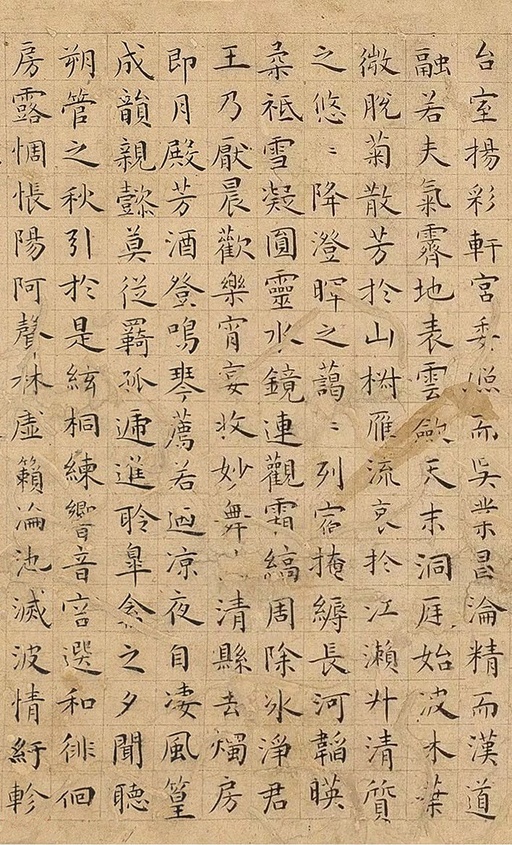 台室揚彩軒宮委照而吳業昌淪精而漢道
融若夫氣霽地表雲歛天末洞庭始波木葉
微脫菊散芳於山椒雁流哀於江瀨升清質
之悠〻降澄暉之藹〻列宿掩縟長河韜暎
柔祇雪凝圓靈水鏡連觀霜縞周除冰淨君
王乃厭晨歡樂宵宴收妙舞清縣去燭房
即月殿芳酒登鳴琴薦若迺涼夜自淒風篁
成韻親懿莫從羇孤遞進聆皐禽之夕聞聽
朔管之秋引於是絃桐練響音容選和徘徊
房露惆悵陽阿聲林虛籟淪池滅波情紆軫